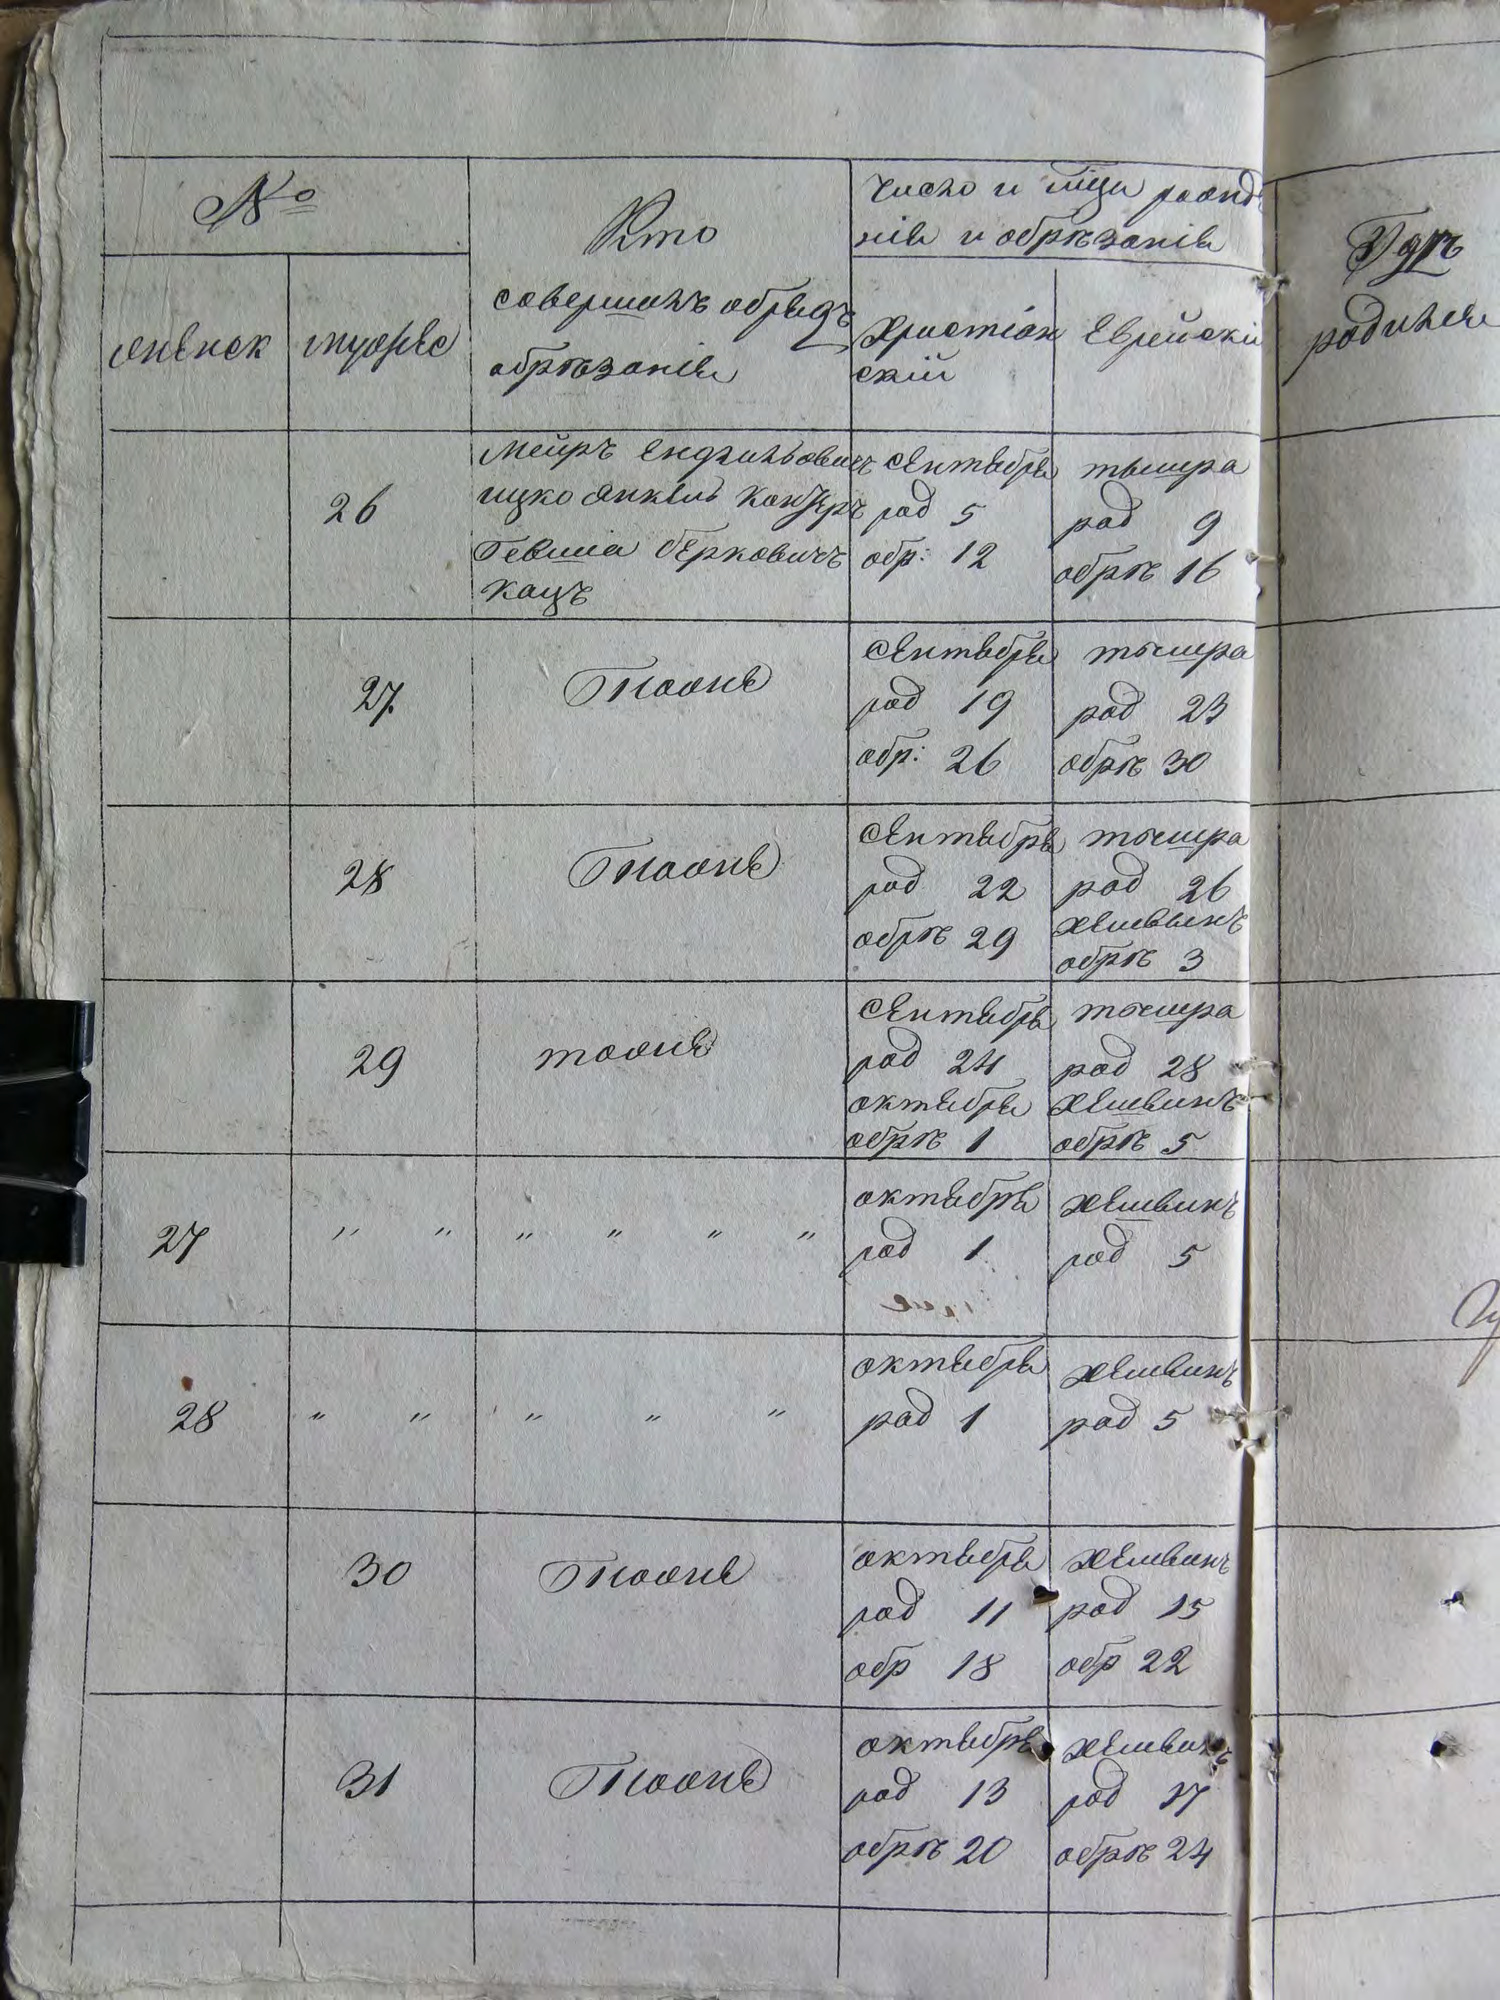 №
Кто
совершалъ обрядъ
обрѣзанія
число и мѣсяц рожде
нія и обрѣзанія
Гдѣ
родился
женск
мужес
Христіан
скій
Еврейскій
26
Мейръ
Ицко Янкель Канторъ
Гевшіа Берковичъ
Кацъ
Сентября
род 5
обр: 12
тышра
род 9
обрѣ 16
27.
Тоже
Сентября
род 19
обр: 26
тышра
род 23
обрѣ 30
28
Тоже
Сентября
род 22
обрѣ 29
тышра
род 26
хешвынъ
обрѣ 3
29
тоже
Сентября
род 24
октября
обрѣ 1
тышра
род 28
хешвинъ
обрѣ 5
27
" " " " " "
октября
род 1
хешвинъ
род 5
28
" " " " "
октября
род 1
хешвинъ
род 5
30
Тоже
октября
род 11
обр 18
хешвинъ
род 15
обр 22
31
Тоже
октября
род 13
обрѣ 20
хешвинъ
род 17
обрѣ 24